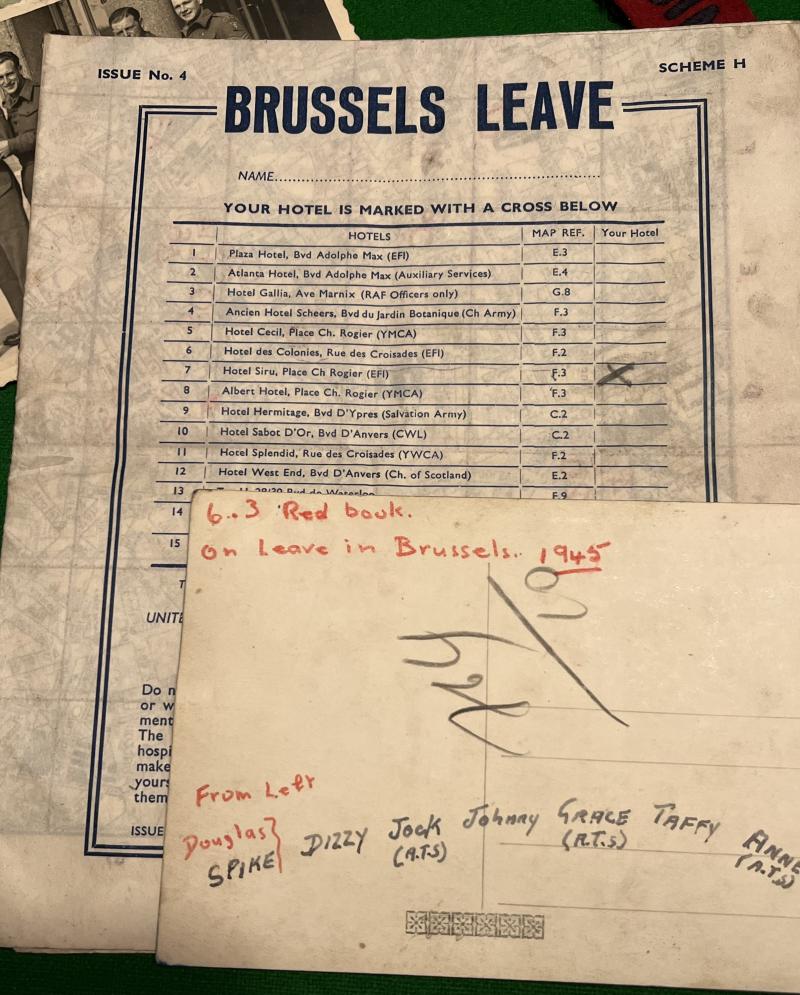 ISSUE No. 4
SCHEME H
BRUSSELS LEAVE
NAME
YOUR HOTEL IS MARKED WITH A CROSS BELOW
HOTELS MAP REF. Your Hotel
1 Plaza Hotel, Bvd Adolphe Max (EFI) E.3
2 Atlanta Hotel, Bvd Adolphe Max (Auxiliary Services) E.4
3 Hotel Gallia, Ave Marnix (RAF Officers only) G.8
4 Ancien Hotel Scheers, Bvd du Jardin Botanique (Ch Army) F.3
5 Hotel Cecil, Place Ch. Rogier (YMCA) F.3
6 Hotel des Colonies, Rue des Croisades (EFI) F.2
7 Hotel Siru, Place Ch Rogier (EFI) F.3 X
8 Albert Hotel, Place Ch. Rogier (YMCA) F.3
9 Hotel Hermitage, Bvd D'Ypres (Salvation Army) C.2
10 Hotel Sabot D'Or, Bvd D'Anvers (CWL) C.2
11 Hotel Splendid, Rue des Croisades (YWCA) F.2
12 Hotel West End, Bvd D'Anvers (Ch. of Scotland) E.2
13 28/30 Bvd de Waterloo F.9
14
15
T
UNITE
Do n
or w
ment
The
hospi
make
yours
them
ISSUE
6..3 Red book.
On Leave in Brussels.. 1945
From Left
Douglas} DIZZY Jock Johnny GRACE TAFFY ANNE
SPIKE (A.T.S) (A.T.S) (A.T.S)